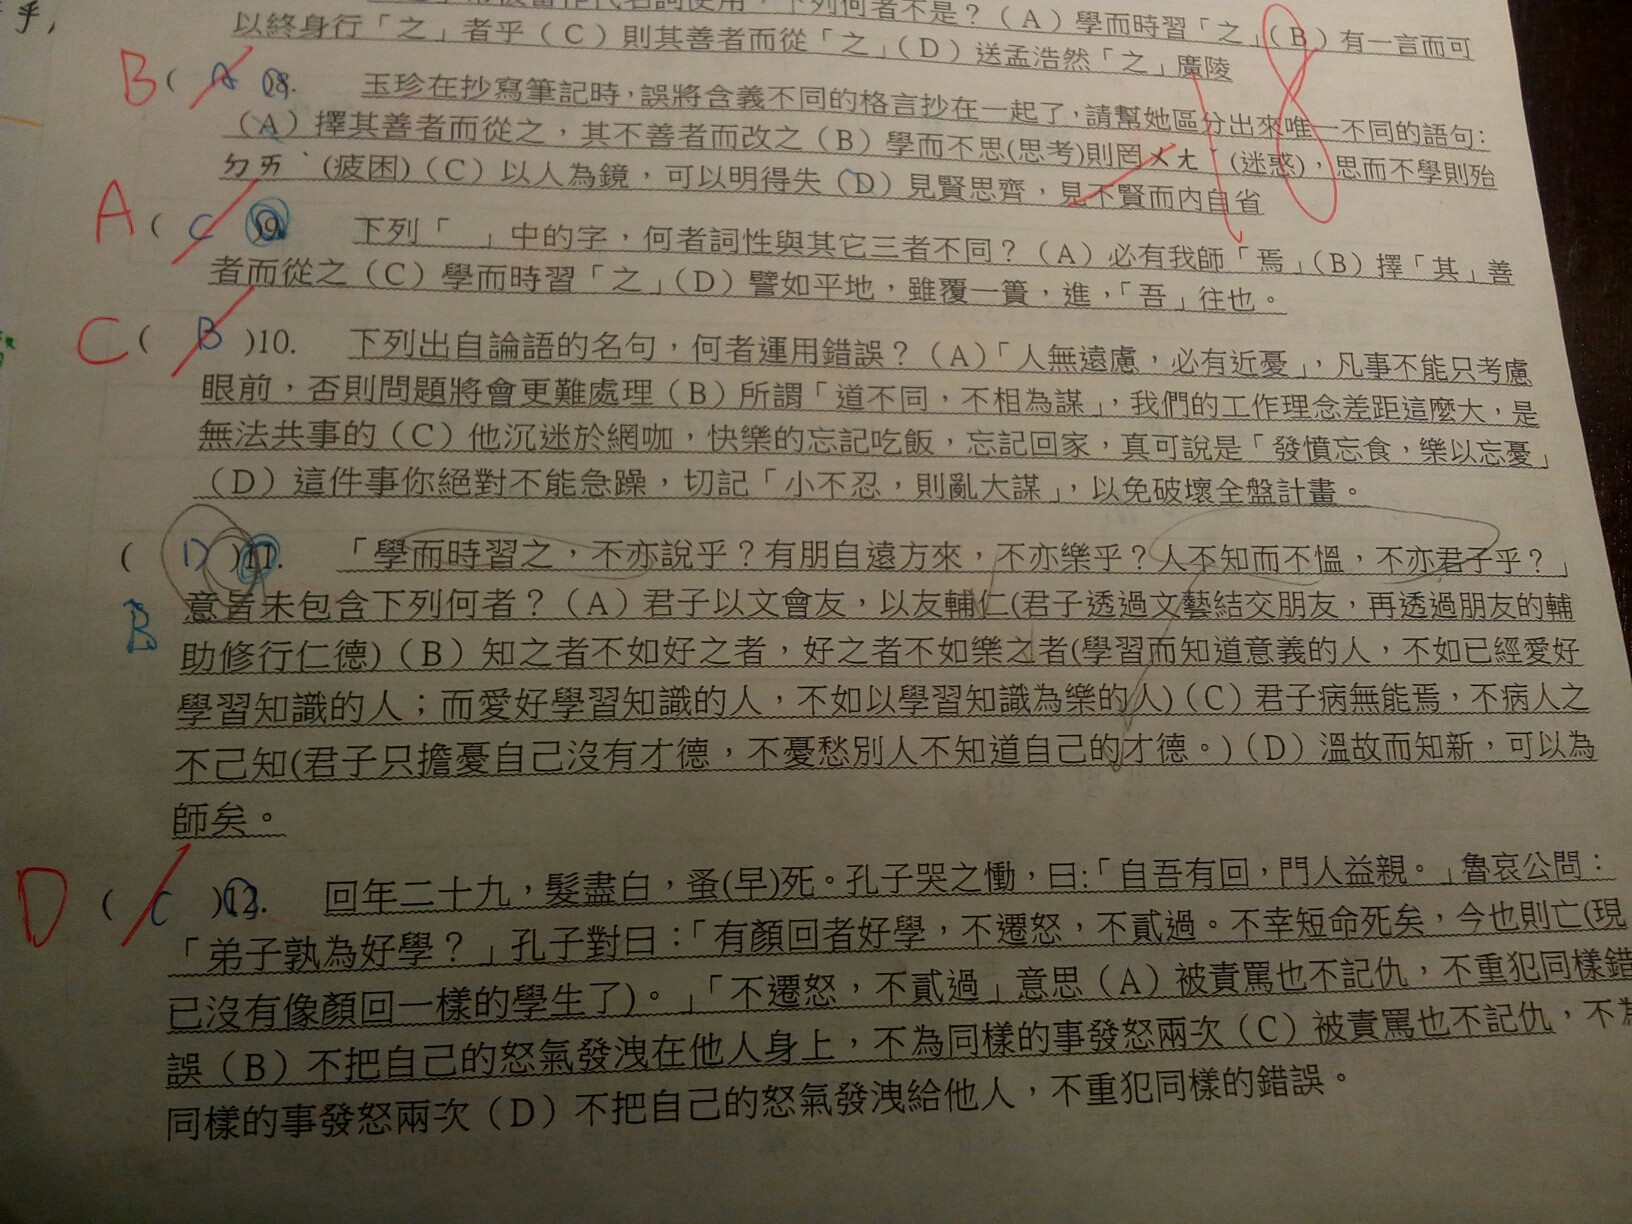 乎,
使用，下列何者不是？（A）學而時習「之」（B）有一言而可
以終身行「之」者乎（C）則其善者而從「之」（D）送孟浩然「之」廣陵
B ( A )8. 玉珍在抄寫筆記時，誤將含義不同的格言抄在一起了，請幫她區分出來唯一不同的語句：
（A）擇其善者而從之，其不善者而改之（B）學而不思(思考)則罔ㄨㄤˇ(迷惑)，思而不學則殆
ㄉㄞˋ(疲困)（C）以人為鏡，可以明得失（D）見賢思齊，見不賢而內自省
A ( C )9. 下列「 」中的字，何者詞性與其它三者不同？（A）必有我師「焉」（B）擇「其」善
者而從之（C）學而時習「之」（D）譬如平地，雖覆一簣，進，「吾」往也。
C ( B )10. 下列出自論語的名句，何者運用錯誤？（A）「人無遠慮，必有近憂」，凡事不能只考慮
眼前，否則問題將會更難處理（B）所謂「道不同，不相為謀」，我們的工作理念差距這麼大，是
無法共事的（C）他沉迷於網咖，快樂的忘記吃飯，忘記回家，真可說是「發憤忘食，樂以忘憂」
（D）這件事你絕對不能急躁，切記「小不忍，則亂大謀」，以免破壞全盤計畫。
( D )11. 「學而時習之，不亦說乎？有朋自遠方來，不亦樂乎？人不知而不慍，不亦君子乎？」
B 意旨未包含下列何者？（A）君子以文會友，以友輔仁(君子透過文藝結交朋友，再透過朋友的輔
助修行仁德)（B）知之者不如好之者，好之者不如樂之者(學習而知道意義的人，不如已經愛好
學習知識的人；而愛好學習知識的人，不如以學習知識為樂的人)（C）君子病無能焉，不病人之
不己知(君子只擔憂自己沒有才德，不憂愁別人不知道自己的才德。)（D）溫故而知新，可以為
師矣。
D ( C )12. 回年二十九，髮盡白，蚤(早)死。孔子哭之慟，曰:「自吾有回，門人益親。」魯哀公問：
「弟子孰為好學？」孔子對曰：「有顏回者好學，不遷怒，不貳過。不幸短命死矣，今也則亡(現
已沒有像顏回一樣的學生了)。」「不遷怒，不貳過」意思（A）被責罵也不記仇，不重犯同樣錯
誤（B）不把自己的怒氣發洩在他人身上，不為同樣的事發怒兩次（C）被責罵也不記仇，不為
同樣的事發怒兩次（D）不把自己的怒氣發洩給他人，不重犯同樣的錯誤。